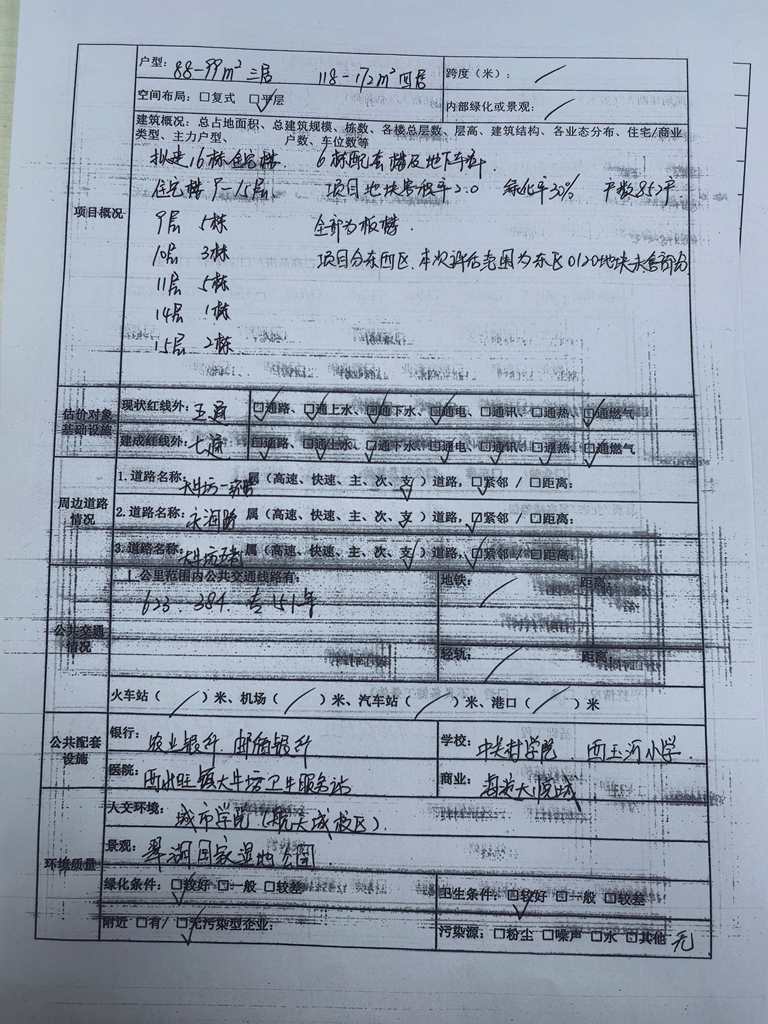 户型: 88-99m² 三居 118-172m² 四居
跨度(米): /
空间布局: □复式 ☑平层
内部绿化或景观: /
项目概况
建筑概况: 总占地面积、总建筑规模、栋数、各楼总层数、层高、建筑结构、各业态分布、住宅/商业
类型、主力户型、 户数、车位数等
拟建16栋住宅楼. 6栋配套楼及地下车库.
住宅楼 9-15层 项目地块容积率2.0 绿化率30% 户数852户
9层 5栋 全部为板楼.
10层 3栋 项目分东西区.本次评估范围为东区0120地块住宅部分
11层 5栋
14层 1栋
15层 2栋
估价对象
基础设施
现状红线外: 五通 ☑通路、☑通上水、☑通下水、☑通电、□通讯、□通热、☑通燃气
建成红线外: 七通 ☑通路、☑通上水、☑通下水、☑通电、☑通讯、☑通热、☑通燃气
周边道路
情况
1. 道路名称: 大牛坊一 属(高速、快速、主、次、支)道路, ☑紧邻 / □距离:
2. 道路名称: 永润路 属(高速、快速、主、次、支)道路, ☑紧邻 / □距离:
3. 道路名称: 大牛坊 属(高速、快速、主、次、支)道路, ☑紧邻 / □距离:
公共交通
情况
1 公里范围内公共交通线路有:
623. 384. 专151 等
地铁: / 距离:
轻轨: / 距离:
火车站( / )米、机场( / )米、汽车站( / )米、港口( / )米
公共配套
设施
银行: 农业银行 邮储银行
学校: 中关村学院. 西玉河小学.
医院: 西北旺镇大牛坊卫生服务站
商业:
环境质量
人文环境: 城市学院(航天城校区).
景观: 翠湖国家湿地公园.
绿化条件: ☑较好 □一般 □较差
卫生条件: ☑较好 □一般 □较差
附近 □有/ ☑无污染型企业:
污染源: □粉尘 □噪声 □水 □其他 无